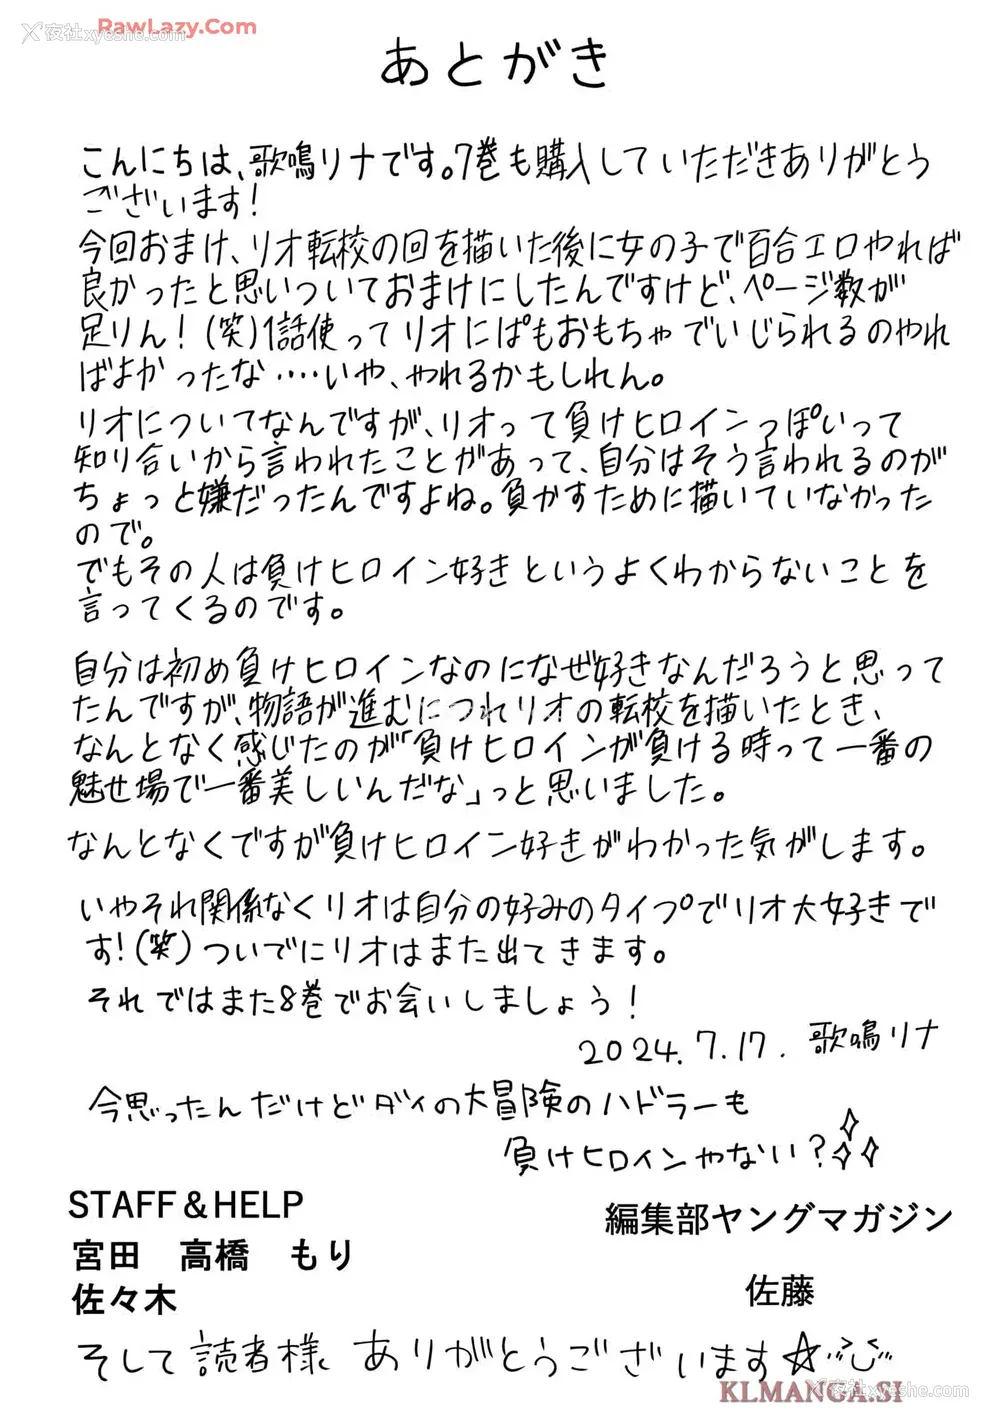 RawLazy.Com
夜社xyeshe.com
あとがき
こんにちは、歌鳴リナです。7巻も購入していただきありがとう
ございます！
今回おまけ、リオ転校の回を描いた後に女の子で百合エロやれば
良かったと思いついておまけにしたんですけど、ページ数が
足りん！(笑)1話使ってリオにぱもおもちゃでいじられるのやれ
ばよかったな････いや、やれるかもしれん。
リオについてなんですが、リオって負けヒロインっぽいって
知り合いから言われたことがあって、自分はそう言われるのが
ちょっと嫌だったんですよね。負かすために描いていなかった
ので。
でもその人は負けヒロイン好きというよくわからないことを
言ってくるのです。
自分は初め負けヒロインなのになぜ好きなんだろうと思って
たんですが、物語が進むにつれリオの転校を描いたとき、
なんとなく感じたのが「負けヒロインが負ける時って一番の
魅せ場で一番美しいんだな」っと思いました。
なんとなくですが負けヒロイン好きがわかった気がします。
いやそれ関係なくリオは自分の好みのタイプでリオ大好きで
す！(笑)ついでにリオはまた出てきます。
それではまた8巻でお会いしましょう！
2024.7.17. 歌鳴リナ
今思ったんだけどダイの大冒険のハドラーも
負けヒロインやない？
STAFF＆HELP
編集部ヤングマガジン
宮田　高橋　もり
佐々木
佐藤
そして読者様 ありがとうございます☆
KLMANGA.SI
夜社xyeshe.com